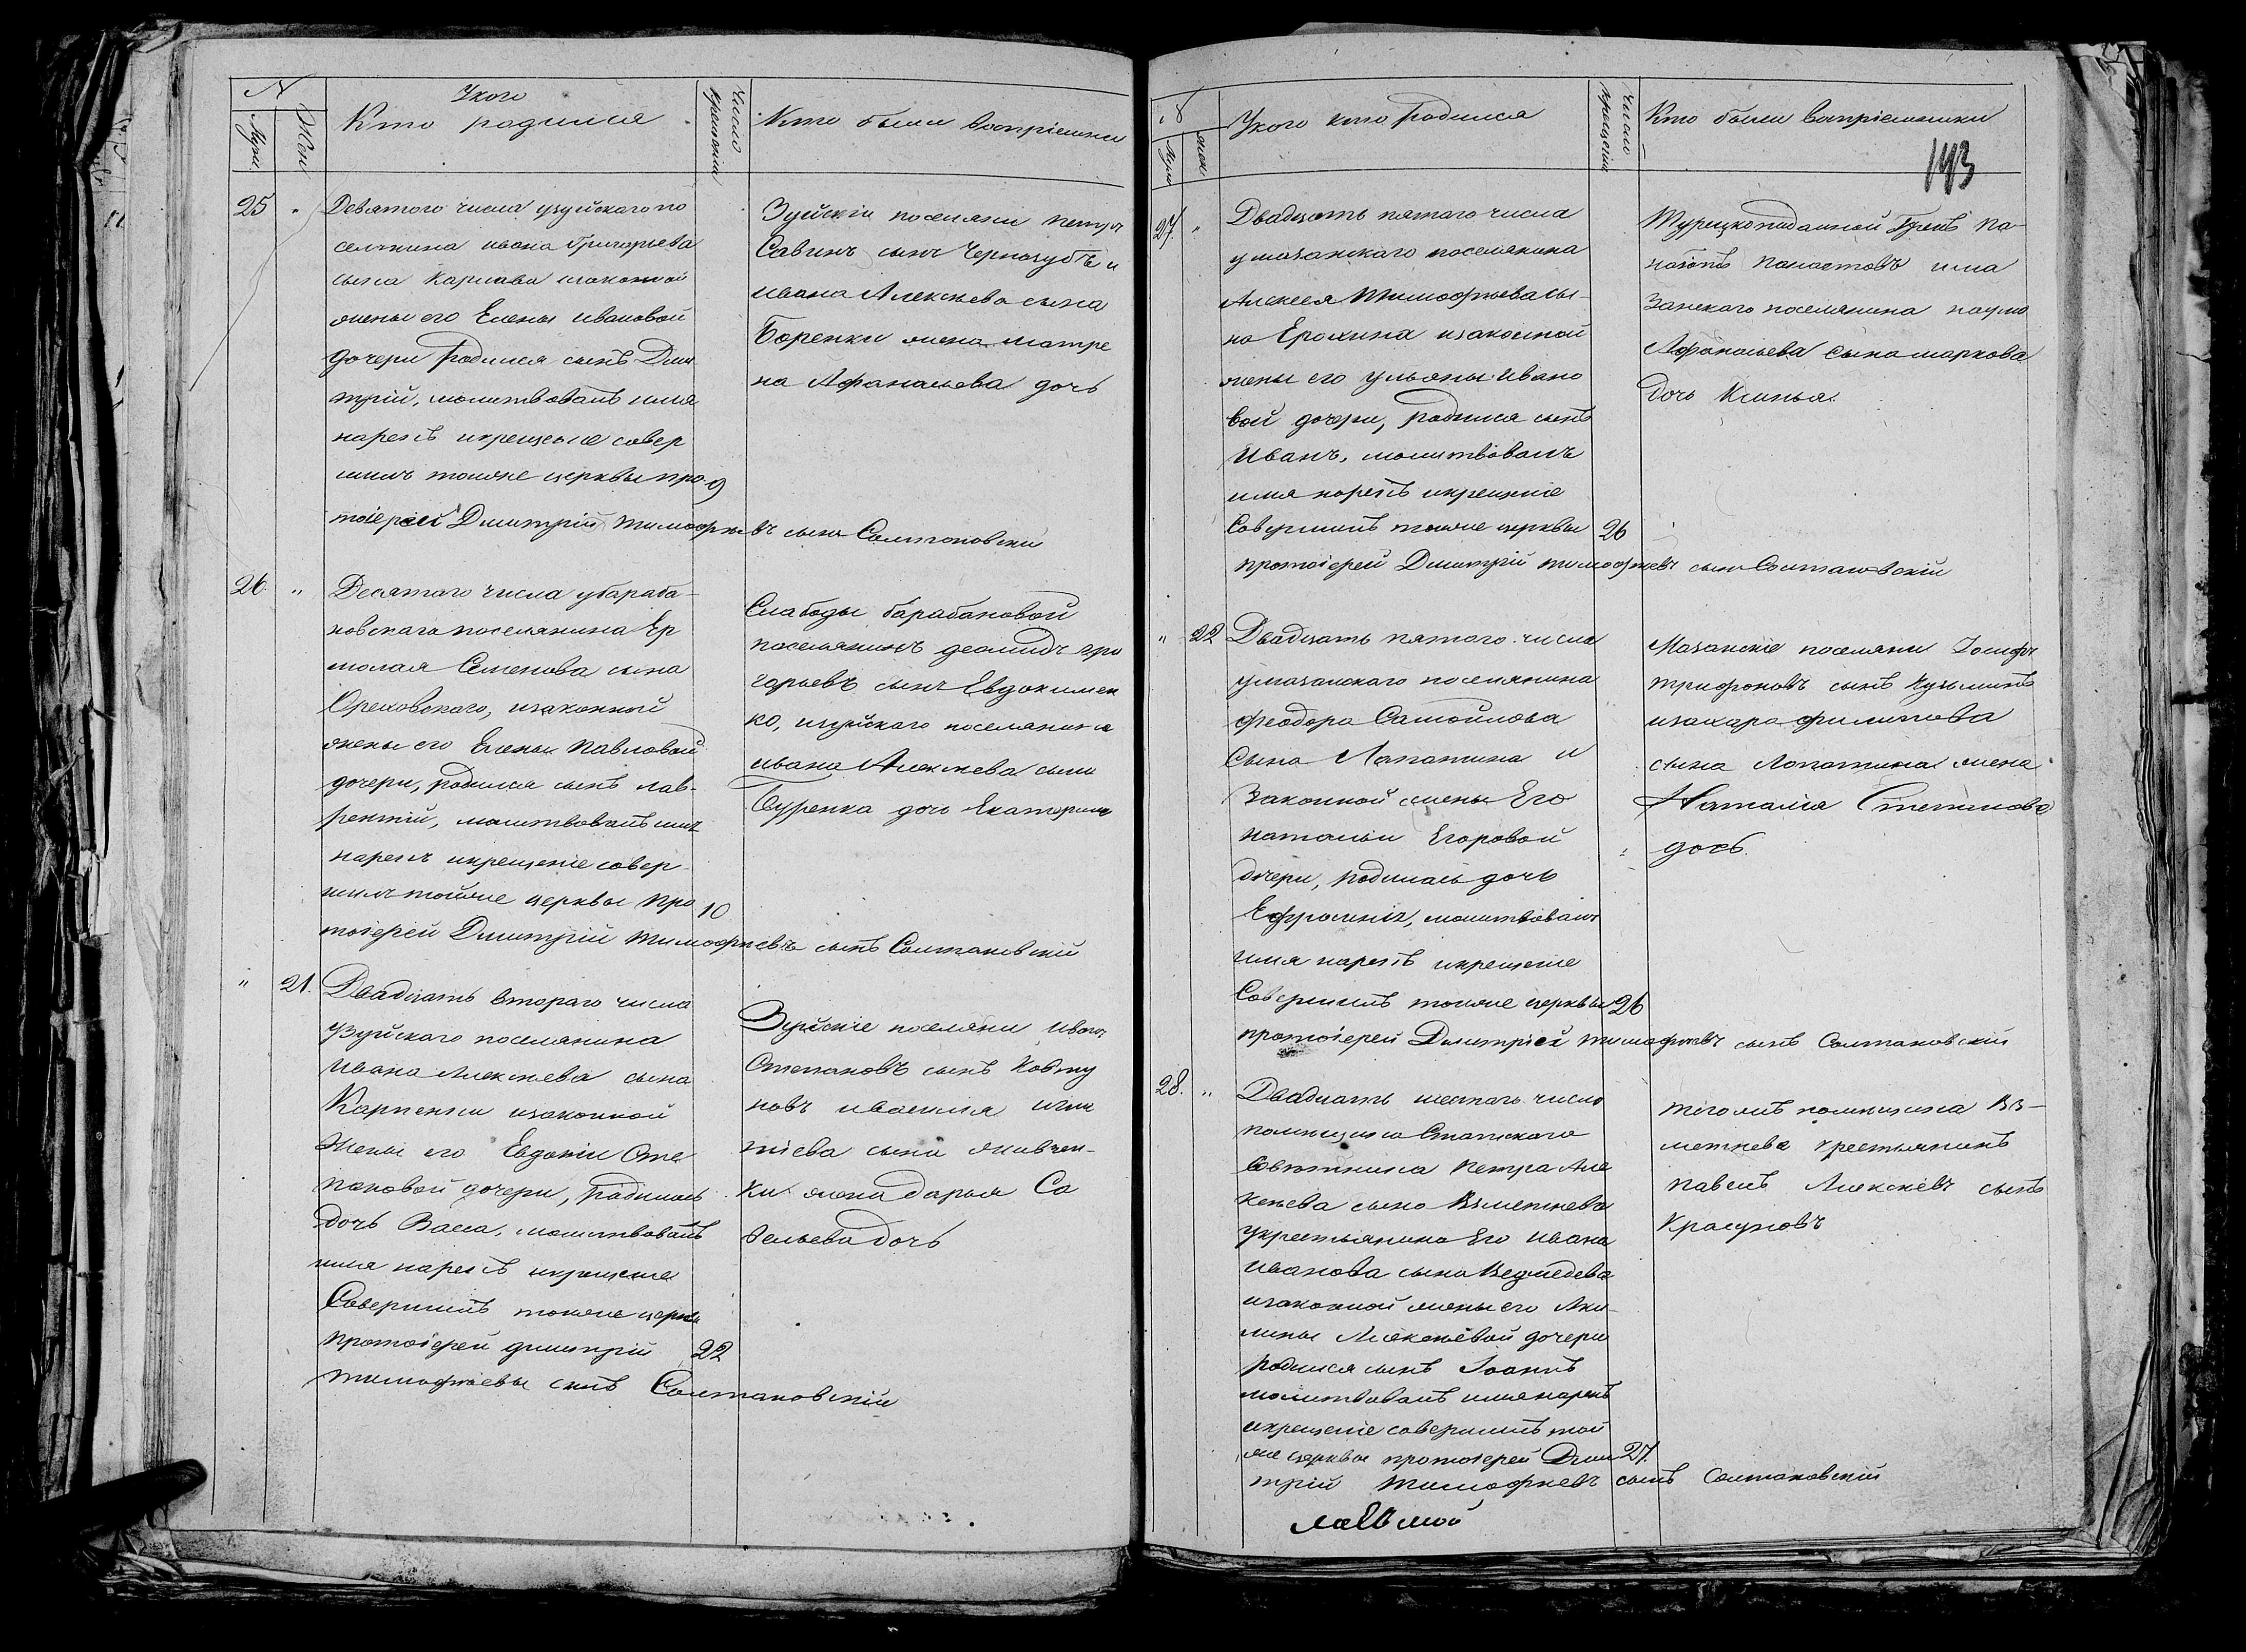 №
Муж
Жен
Укого
Кто родился
Число крещенія
Кто были воспріемники
25 "
Девятого числа узуйскаго по
селянина ивана Григорьева
сына Карпова изаконной
жены его Елены ивановой
дочери родился сынъ Дми
трій, молитвовалъ имя
нарекъ икрещеніе совер
шилъ тояже церквы про 9
тоіерей Димитрій тимофѣевъ сынъ Солтановскій
Зуйскіи поселяни петръ
Савинъ сынъ Чернозубъ и
ивана Алексѣева сына
Боренки жена матре
на Афанасьева дочь
26. "
Десятого числа убараба-
новскаго поселянина Ер
молая Семенова сына
Ореховскаго, изаконной
жены его Елены павловой
дочери, родился сынъ лав-
рентій, молитвовалъ имя
нарекъ икрещеніе совер
шилъ тойже церквы про 10
тоіерей Димитрій тимофѣевъ сынъ Солтановскій
Слабоды барабановой
поселянинъ деомидъ гри
горьевъ сынъ Евдокимен
ко, изуйскаго поселянина
ивана Алексѣева сына
Буренка дочь Екатерина
" 21.
Двадцать втораго числа
узуйскаго поселянина
ивана Алексѣева сына
Карпенки изаконной
Жены его Евдокіи Сте
пановой дочери, родилась
дочь Васса, молитвовалъ
имя нарекъ икрещеніе
Совершилъ тояже церквы
протоіерей димитрій 22
тимофѣевъ сынъ Солтановскій
Зуйскіе поселяни иванъ
Степановъ сынъ Ковту
новъ ивасилія
тіева сына яковчен-
ки жена дарья Са
вельева дочь
№
Муж
жен
Укого кто родился
Число крещенія
Кто были воспріемники
193
27. "
Двадцать пятаго числа
умазанскаго поселянина
Алексея Тимофѣева сы-
на Ерохина изаконной
жены его ульяны ивано
вой дочери, родился сынъ
Иванъ, молитвовалъ
имя нарекъ икрещеніе
Совершилъ тояже церквы 26
протоіерей Димитрій тимофѣевъ сынъ Солтановскій
Турецкоподанной Грекъ па-
наіотъ има
занскаго поселянина наума
Афанасьева сына маркова
дочь Ксинья.
" 22
Двадцать пятаго числа
умазанскаго поселянина
феодора Самойлова
Сына Лапатина и
Законной жены Его
наталіи Егоровой
дочери, родилась дочь
Ефросинія, молитвовалъ
имя нарекъ икрещеніе
Совершилъ тояже церквы 26
протоіерей Димитрій тимофѣевъ сынъ Солтановскій
Мазанскіе поселяни Іосифъ
трифоновъ сынъ Кузьминъ
изахара филипова
сына Лопатина жена
Наталія Степанова
дочь.
28. "
Двадцать шестаго числа
помещика Статскаго
Советника петра Але
ксѣева сына Взметнева
укрестьянина Его ивана
иванова сына Ведмедева
изаконной жены его Аку
лины Алексѣевой дочери
родился сынъ Іоаннъ
молитвовалъ имя нарекъ
икрещеніе совершилъ той
же церквы протоіерей Дими 27.
трій Тимофѣевъ сынъ Солтановскій
тогожъ помещика Вз-
метнева крестьянинъ
павелъ Алексѣевъ сынъ
Красуновъ